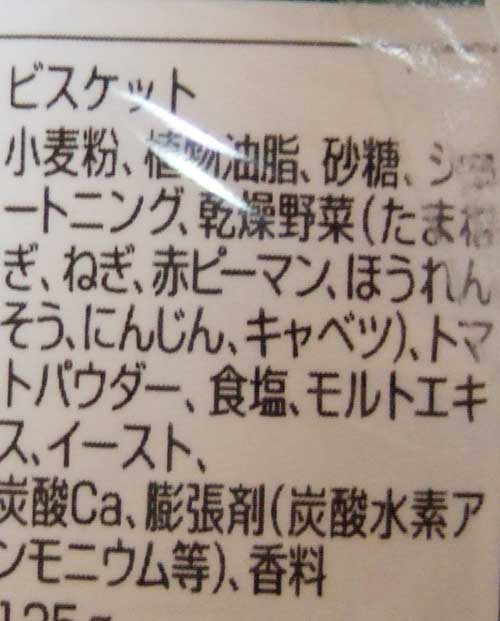 ビスケット
小麦粉、植物油脂、砂糖、ショ
ートニング、乾燥野菜(たまね
ぎ、ねぎ、赤ピーマン、ほうれん
そう、にんじん、キャベツ)、トマ
トパウダー、食塩、モルトエキ
ス、イースト、
炭酸Ca、膨張剤(炭酸水素ア
ンモニウム等)、香料
125g